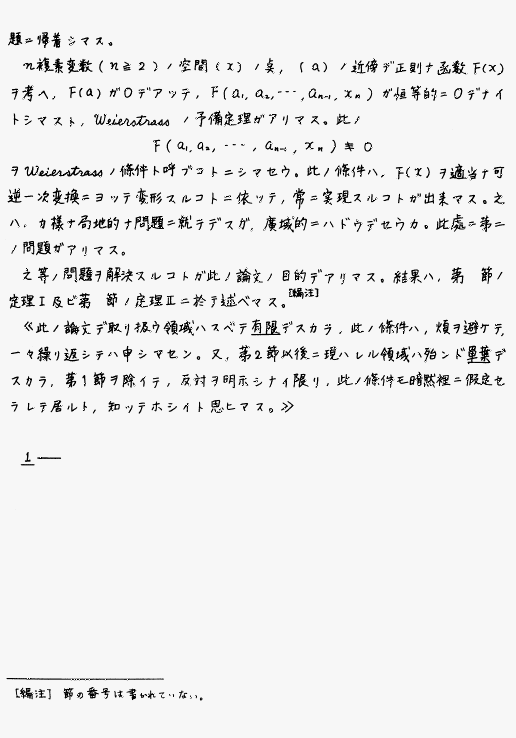 題ニ帰着シマス。
n複素変数(n≧2)ノ空間(x)ノ点，(a)ノ近傍デ正則ナ函数F(x)
ヲ考ヘ，F(a)ガ0デアッテ，F(a₁, a₂, ⋯, aₙ₋₁, xₙ)ガ恒等的ニ0デナイ
トシマスト，Weierstrassノ予備定理ガアリマス。此ノ
F(a₁, a₂, ⋯, aₙ₋₁, xₙ) ≢ 0
ヲWeierstrassノ條件ト呼ブコトニシマセウ。此ノ條件ハ，F(x)ヲ適当ナ可
逆一次変換ニヨッテ変形スルコトニ依ッテ，常ニ実現スルコトガ出来マス。之
ハ，カ様ナ局地的ナ問題ニ就テデスガ，廣域的ニハドウデセウカ。此處ニ第二
ノ問題ガアリマス。
之等ノ問題ヲ解決スルコトガ此ノ論文ノ目的デアリマス。結果ハ，第　節ノ
定理I及ビ第　節ノ定理IIニ於テ述ベマス。[編注]
≪此ノ論文デ取リ扱ウ領域ハスベテ有限デスカラ，此ノ條件ハ，煩ヲ避ケテ，
一々繰リ返シテハ申シマセン。又，第2節以後ニ現ハレル領域ハ殆ンド單葉デ
スカラ，第1節ヲ除イテ，反対ヲ明示シナイ限リ，此ノ條件モ暗黙裡ニ假定セ
ラレテ居ルト，知ッテホシイト思ヒマス。≫
1 ──
[編注]　節の番号は書かれていない。